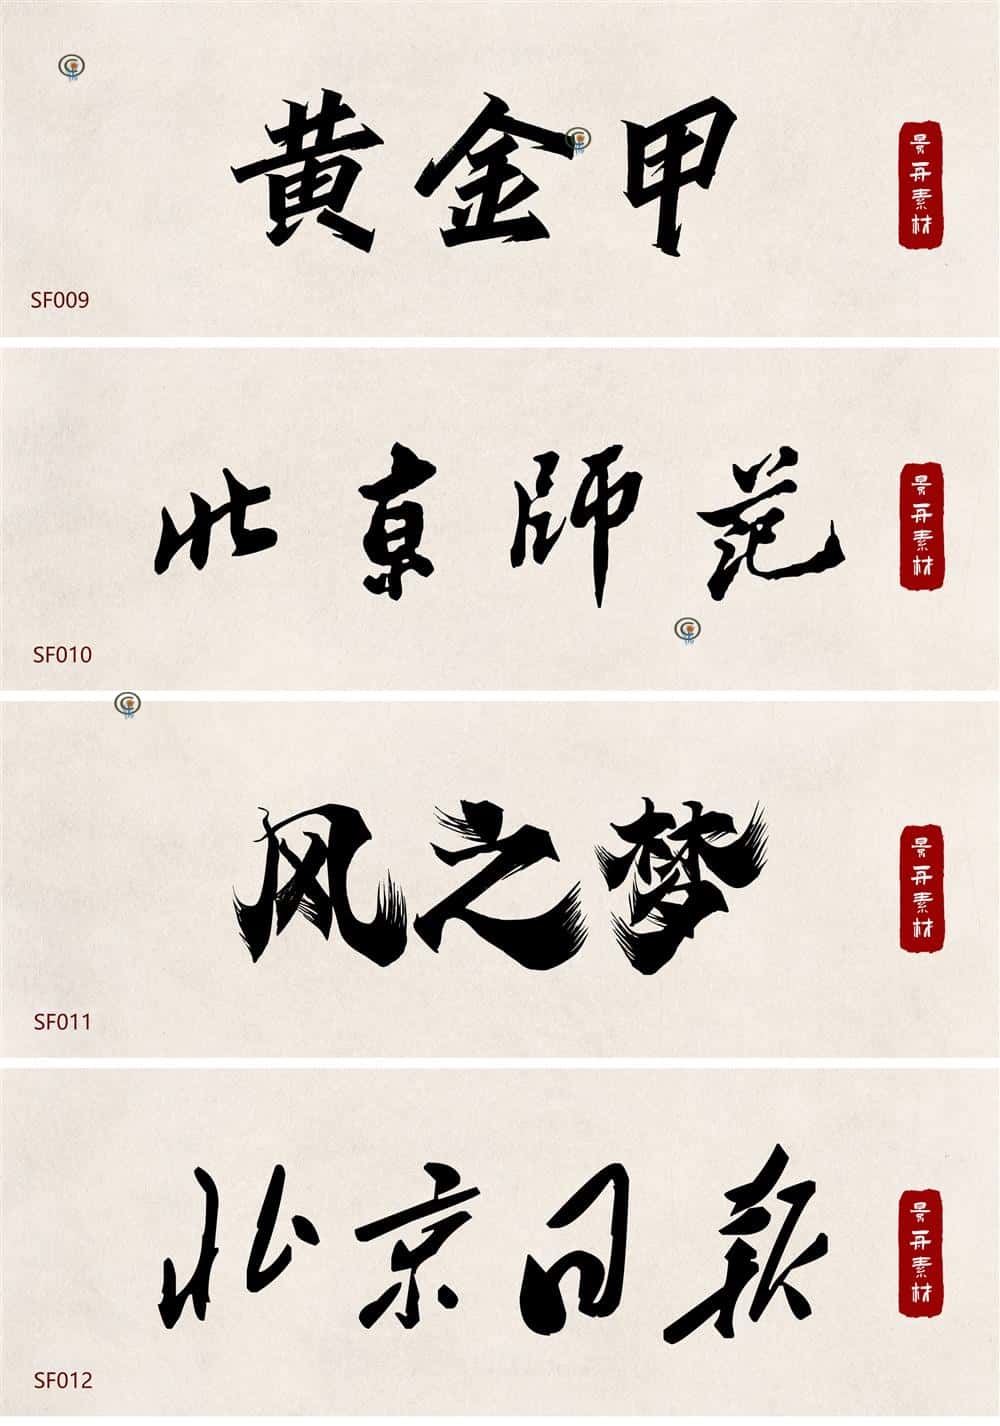 黄金甲
景舟素材
SF009
北京师范
景舟素材
SF010
风之梦
景舟素材
SF011
北京日报
景舟素材
SF012